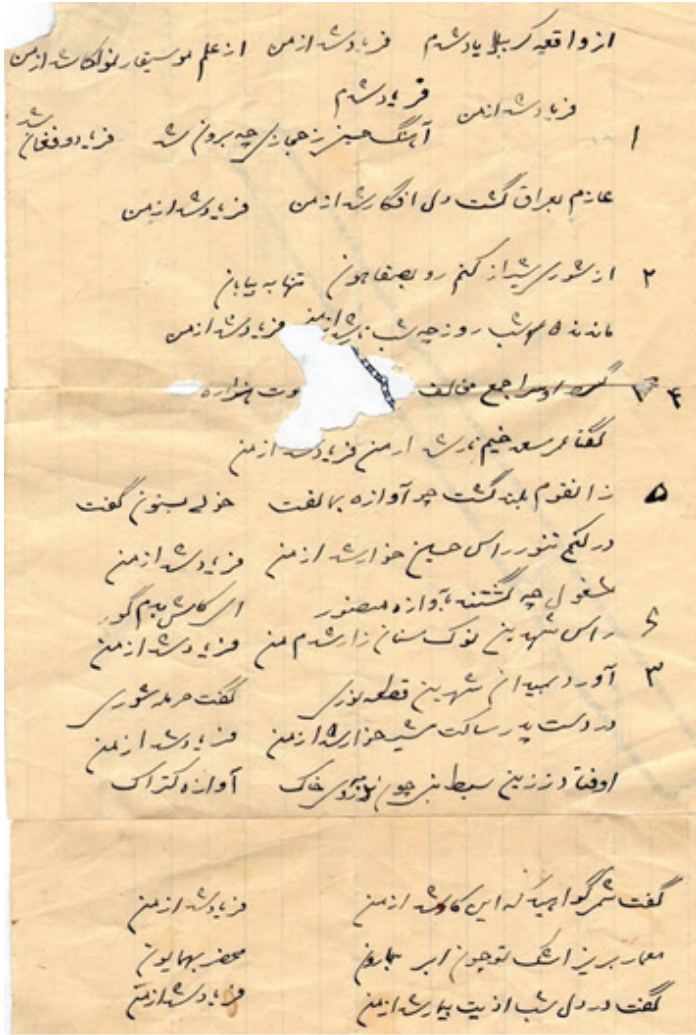 از واقعه کربلا یادشدم فریاد شد از من از علم موسیقار نواکا شد از من
فریاد شد از من فریاد شدم
۱ آهنگ حسین ز حجازی چه برون شد فریاد و فغان شد
عازم بعراق گشت دل افکار شد از من فریاد شد از من
۲ از شوری شیراز کنم رو بصفاهون تنها به بیابان
مانده شب روز چه شب شد از من فریاد شد از من
۴ جمع مخالف هزاره
گفتا عمر سعد خیم شد از من فریاد شد از من
۵ زانقوم بلند گشت چو آوازه بمالفت خولی گفت
در کنج تنور راس حسین خوار شد از من فریاد شد از من
مشغول چه گشتند بآوازه منصور ای کاش بدم کور
۶ راس شهدین نوک سنان زار شدم من فریاد شد از من
۳ آورد بمیدان شهدین قطعه نوری گفت حرمله شوری
در دست پدر ساکت شد از من فریاد شد از من
اوفتاد ز زین سبط نبی چون بروی خاک آوازه کتراک
گفت شمر گواهید که این کار شد از من فریاد شد از من
معمار بریز اشک تو چون ابر بهارون محضر بهمایون
گفت در دل شب اذیت بیمار شد از من فریاد شد از من